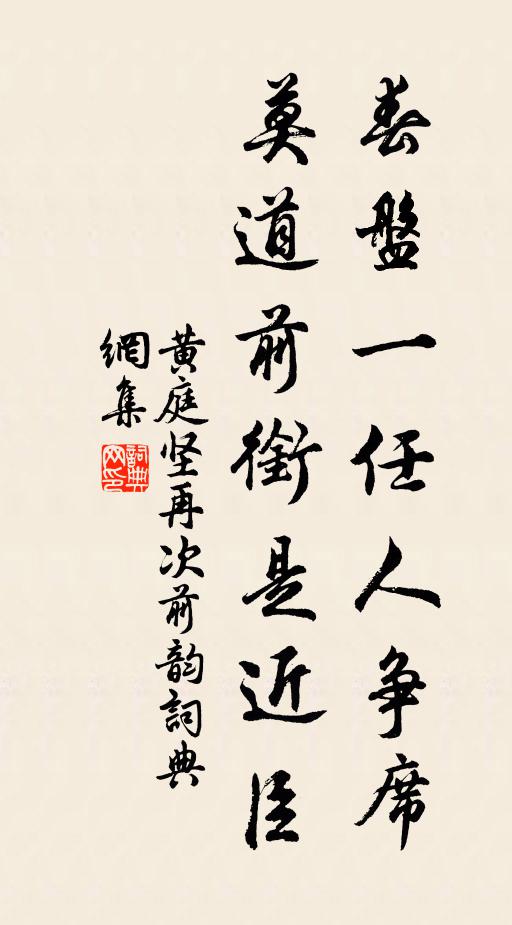 春盤一任人争席
莫道前銜是近臣
黄庭坚再次前韵詞典
網集
詞典網印